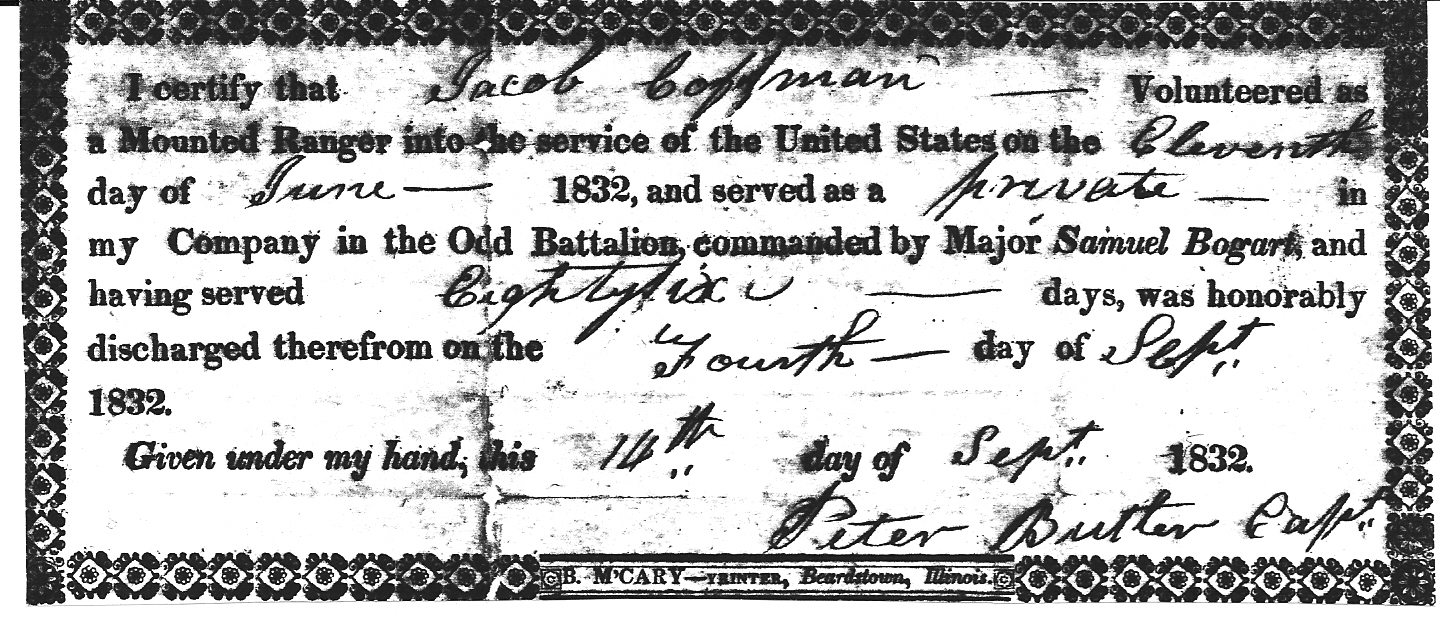 I certify that Jacob Coffman — Volunteered as
a Mounted Ranger into the service of the United States on the Eleventh
day of June — 1832, and served as a private — in
my Company in the Odd Battalion, commanded by Major Samuel Bogart, and
having served Eightysix — days, was honorably
discharged therefrom on the Fourth — day of Sept.
1832.
Given under my hand, this 14th day of Sept. 1832.
Peter Butler Capt.
B. M'CARY—PRINTER, Beardstown, Illinois.